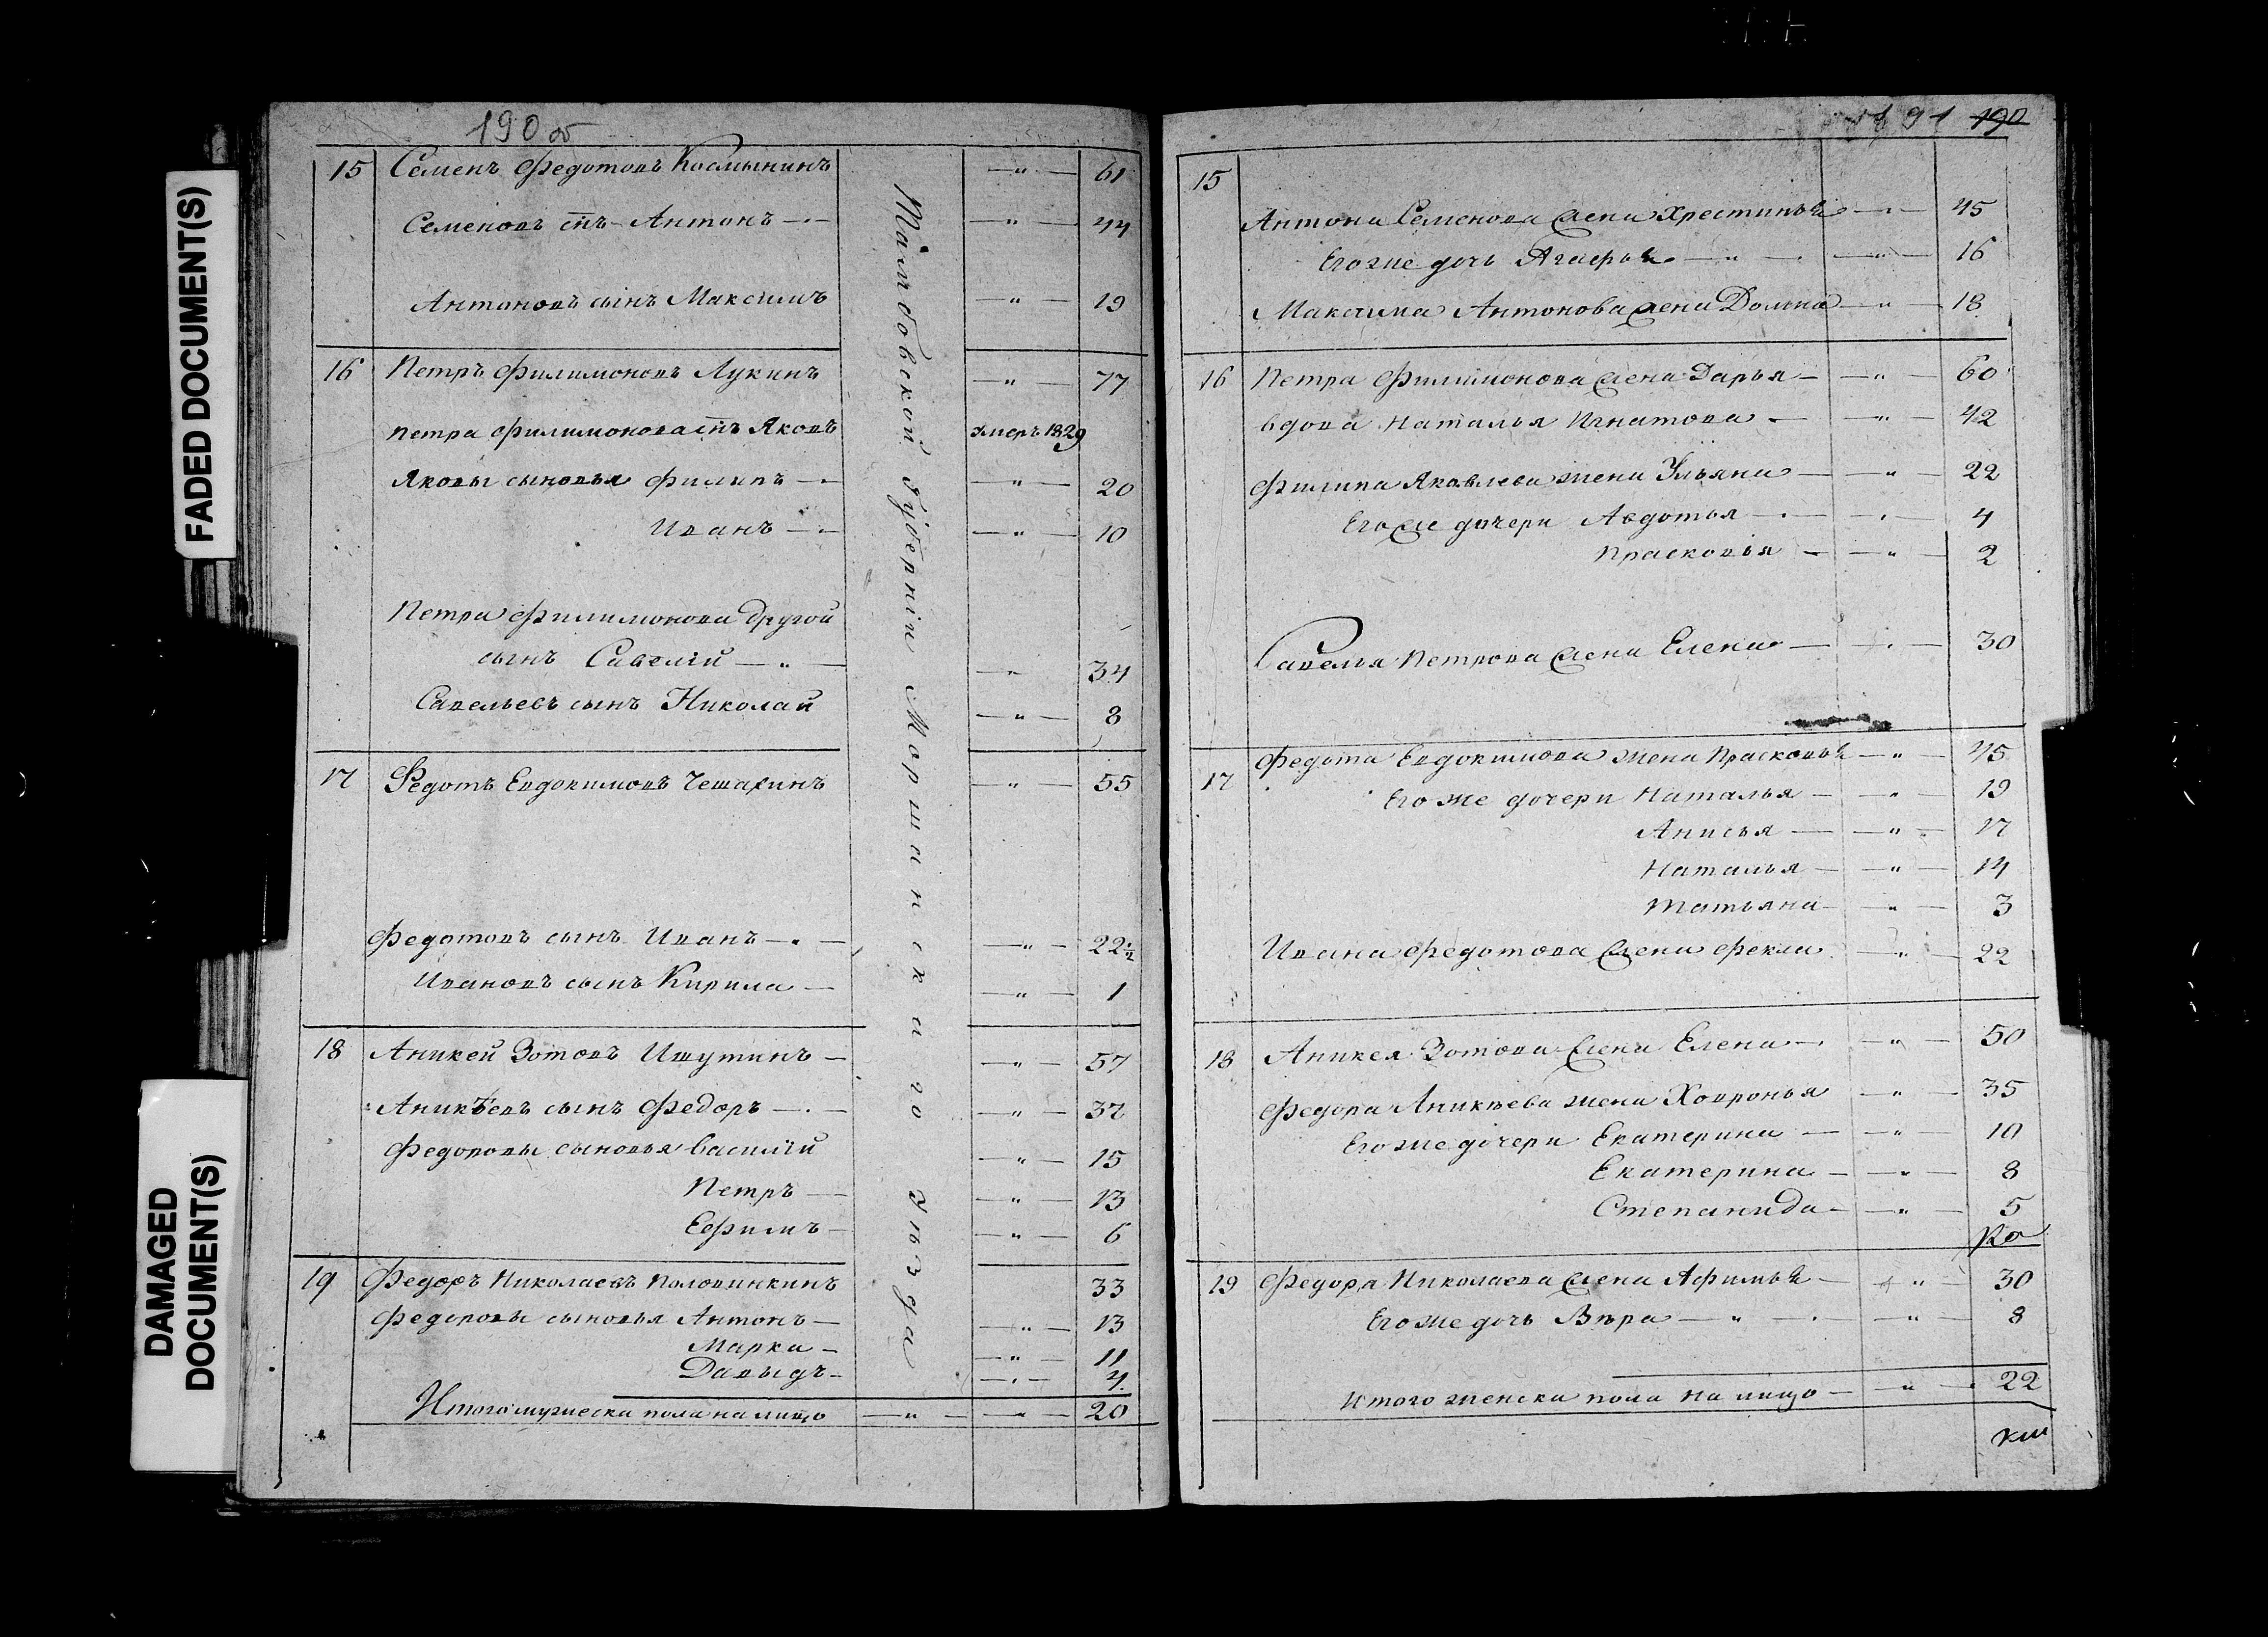 FADED DOCUMENT(S)
DAMAGED
DOCUMENT(S)
190 об
15 Семенъ Федотовъ Космынинъ —"— 61
Семеновъ снъ Антонъ —"— 44
Антоновъ сынъ Максимъ —"— 19
16 Петръ Филимоновъ Лукинъ —"— 77
Петра Филимонова снъ Яковъ умеръ 1829
Яковы сыновья Филипъ —"— 20
Иванъ —"— 10
Петра Филимонова другой
сынъ Савелій —"— 34
Савельевъ сынъ Николай —"— 8
17 Федотъ Евдокимовъ —"— 55
Федотовъ сынъ Иванъ —"— 22 1/2
Ивановъ сынъ Кирила —"— 1
18 Аникей Зотовъ Ишутинъ —"— 57
Аникѣевъ сынъ Федоръ —"— 37
Федоровы сыновья Василій —"— 15
Петръ —"— 13
Ефимъ —"— 6
19 Федоръ Николаевъ Половинкинъ 33
Федоровы сыновья Антонъ —"— 13
Марка —"— 11
Давыдъ —"— 4
Итого мужеска пола на лицо —"— 20
Тамбовской Губерніи Моршанскаго уѣзда
191 190
15
Антона Семенова жена Хрестинья —"— 45
Его же дочь Агафья —"— 16
Максима Антонова жена Домна —"— 18
16 Петра Филимонова жена Дарья —"— 60
вдова Наталья Игнатова —"— 42
Филипа Яковлева жена Ульяна —"— 22
Его же дочери Авдотья —"— 4
Прасковія —"— 2
Савелья Петрова жена Елена —"— 30
17 Федота Евдокимова жена Прасковья —"— 45
Его же дочери Наталья —"— 19
Анисья —"— 17
Наталья —"— 14
Татьяна —"— 3
Ивана Федотова жена Фекла —"— 22
18 Аникея Зотова жена Елена —"— 50
Федора Аникѣева жена Ховронья —"— 35
Его же дочери Екатерина —"— 10
Екатерина —"— 8
Степанида —"— 5
19 Федора Николаева жена Афимья —"— 30
Его же дочь Вѣра —"— 8
Итого женска пола на лицо —"— 22